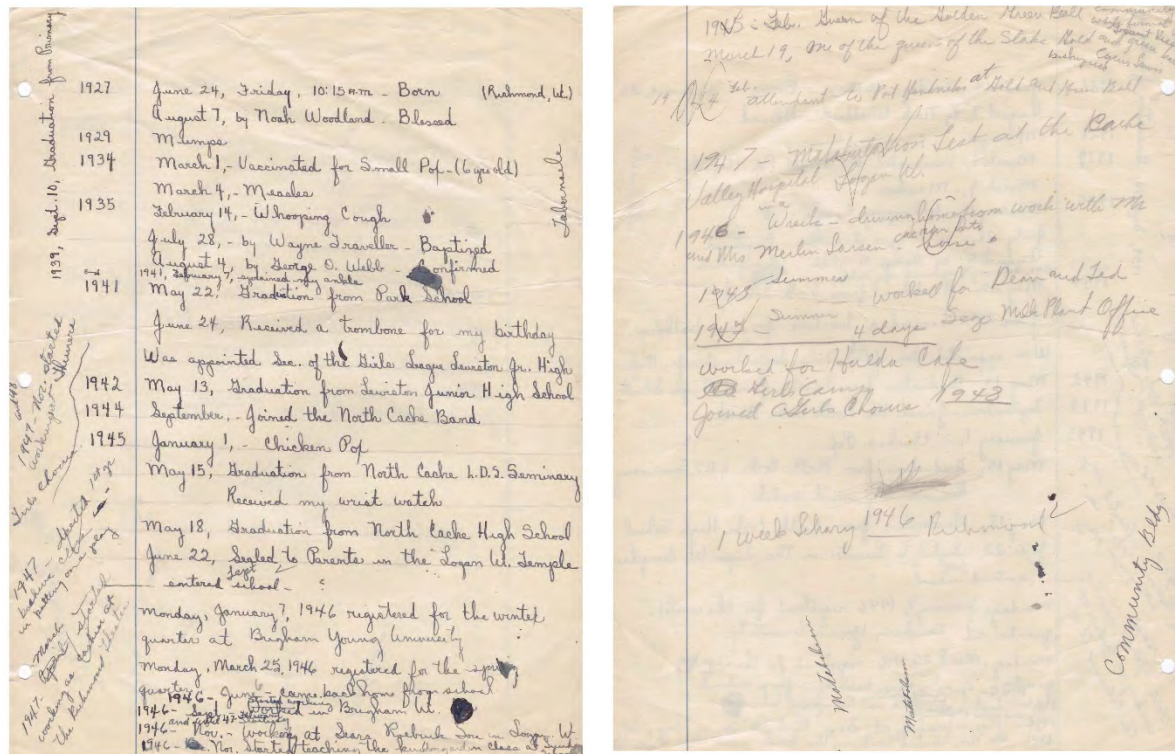 1939, Sept. 10, Graduation from Primary
1927 June 24, Friday, 10:15 A.M. - Born (Richmond, Ut.)
August 7, by Noah Woodland - Blessed
1929 Mumps
1934 March 1, - Vaccinated for Small Pop - (6 yrs old)
March 4, - Measles
1935 February 14, - Whooping Cough
Tabernacle
July 28, - by Wayne Traveller - Baptized
August 4, by George O. Webb - Confirmed
1941, February 7, sprained my ankle
1941 May 22, Graduation from Park School
June 24, Received a trombone for my birthday
Was appointed Sec. of the Girls League Lewiston Jr. High
1942 May 13, Graduation from Lewiston Junior High School
1944 September, - Joined the North Cache Band
1945 January 1, - Chicken Pop
May 15, Graduation from North Cache L.D.S. Seminary
Received my wrist watch
May 18, Graduation from North Cache High School
June 22, Sealed to Parents in the Logan Ut. Temple
entered school - Sept
Monday, January 7, 1946 registered for the winter
quarter at Brigham Young University
Monday, March 25, 1946 registered for the
quarter
1946 - June 6 - came back home from school
1946 - Sept - started working in Brigham Ut.
1946 - Nov. - working at Sears Roebuck Store in Logan Ut.
1946 - Nov. Started teaching the kindergarten class at
1947 - Nov. started
working at
Girls Chorus
1947 - started
in putting on a play
1947 - March started
working as cashier at
the Richmond Theater
1945 - Feb. Queen of the Golden Green Ball
March 19, One of the queens of the Stake Gold and green
Feb. attendant to Pat Hendricks at Gold and Green Ball
1947 - Metabolism Test at the Cache
Valley Hospital Logan Ut.
1946 - Wreck - driving home from work with Mr
and Mrs Merlin Larsen
1943 Summer worked for Dean and Ted
Summer 4 days Sego Milk Plant Office
worked for Hulda Cafe
Girls Camp
Joined Girls Chorus 1943
1 week 1946
Metabolism
Metabolism
Community Bldg